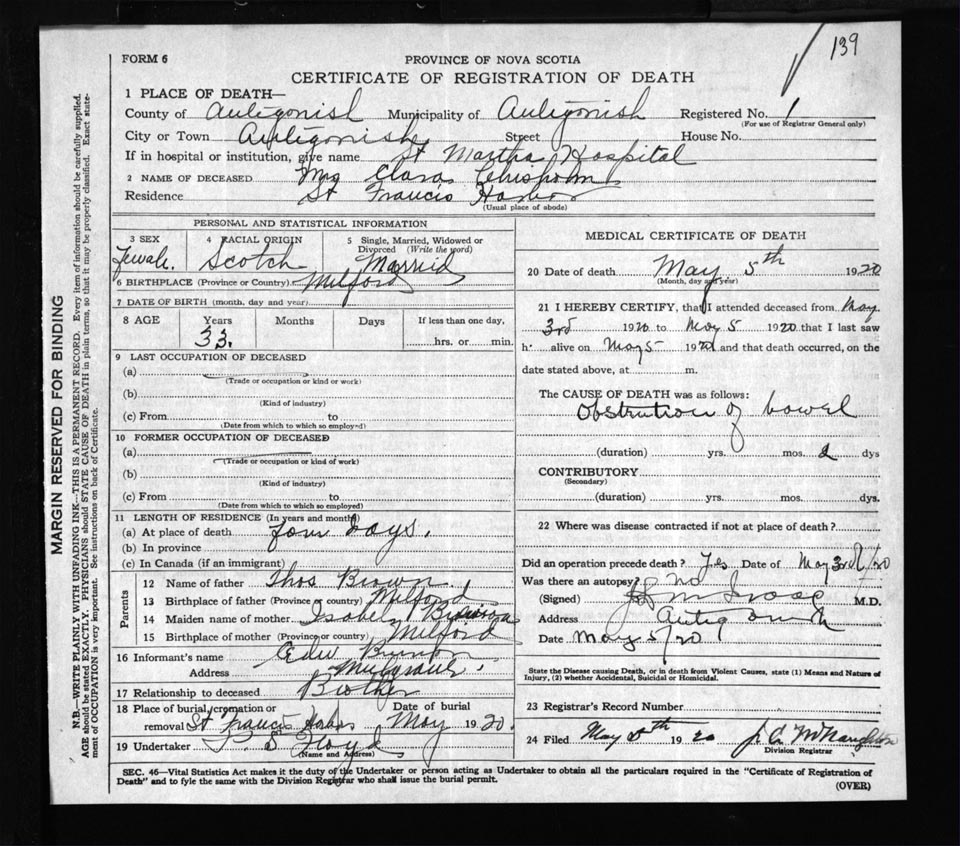 139
FORM 6
PROVINCE OF NOVA SCOTIA
CERTIFICATE OF REGISTRATION OF DEATH
1 PLACE OF DEATH—
County of Antigonish Municipality of Antigonish Registered No. 1
(For use of Registrar General only)
City or Town Antigonish Street House No.
If in hospital or institution, give name St Martha Hospital
2 NAME OF DECEASED Mrs Clara Chisholm
Residence St Francis Harbor
(Usual place of abode)
PERSONAL AND STATISTICAL INFORMATION
3 SEX Female. 4 RACIAL ORIGIN Scotch 5 Single, Married, Widowed or Divorced (Write the word) Married
6 BIRTHPLACE (Province or Country) Milford
7 DATE OF BIRTH (month, day and year)
8 AGE Years 33. Months Days If less than one day, hrs. or min.
9 LAST OCCUPATION OF DECEASED
(a)
(Trade or occupation or kind or work)
(b)
(Kind of industry)
(c) From to
(Date from which to which so employed)
10 FORMER OCCUPATION OF DECEASED
(a)
(Trade or occupation or kind of work)
(b)
(Kind of industry)
(c) From to
(Date from which to which so employed)
11 LENGTH OF RESIDENCE (In years and months)
(a) At place of death four days.
(b) In province
(c) In Canada (if an immigrant)
Parents
12 Name of father Thos Brown
13 Birthplace of father (Province or country) Milford
14 Maiden name of mother Isabela
15 Birthplace of mother (Province or country) Milford
16 Informant's name Edw
Address Mulgrave.
17 Relationship to deceased Brother
18 Place of burial, cremation or removal St Francis Harbor Date of burial May 1920.
19 Undertaker Floyd
(Name and Address)
MEDICAL CERTIFICATE OF DEATH
20 Date of death May 5th 1920
(Month, day and year)
21 I HEREBY CERTIFY, that I attended deceased from May
3rd 1920 to May 5 1920 that I last saw
h alive on May 5 1920 and that death occurred, on the
date stated above, at m.
The CAUSE OF DEATH was as follows:
Obstrution of bowel
(duration) yrs. mos. 2 dys
CONTRIBUTORY
(Secondary)
(duration) yrs. mos. dys.
22 Where was disease contracted if not at place of death?
Did an operation precede death? Yes Date of May 3rd/20
Was there an autopsy? No
(Signed) M.D.
Address Antigonish
Date May 5/20
State the Disease causing Death, or in death from Violent Causes, state (1) Means and Nature of
Injury, (2) whether Accidental, Suicidal or Homicidal.
23 Registrar's Record Number
24 Filed May 1920 J. A. McNaughton
Division Registrar
SEC. 46—Vital Statistics Act makes it the duty of the Undertaker or person acting as Undertaker to obtain all the particulars required in the "Certificate of Registration of
Death" and to fyle the same with the Division Registrar who shall issue the burial permit.
(OVER)
MARGIN RESERVED FOR BINDING
N.B.—WRITE PLAINLY WITH UNFADING INK—THIS IS A PERMANENT RECORD. Every item of information should be carefully supplied.
AGE should be stated EXACTLY. PHYSICIANS should STATE CAUSE OF DEATH in plain terms, so that it may be properly classified. Exact state-
ment of OCCUPATION is very important. See instructions on back of Certificate.